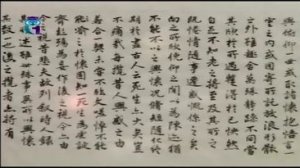 與俯仰一世或取諸懷抱悟言
一室之內或因寄所託放浪形骸
之外雖趣舍萬殊靜躁不同當
其欣於所遇暫得於己快然自
足不知老之將至及其所之既
惓情隨事遷感慨係之矣
向之所欣俛仰之間以為陳迹猶
不能不以之興懷況脩短隨化終
期於盡古人云死生亦大矣豈
不痛哉每攬昔人興感之由
若合一契未嘗不臨文嗟悼不
能喻之於懷固知一死生為虛誕
齊彭殤為妄作後之視今亦由
今之視昔悲夫故列敘時人錄
其所述雖世殊事異所以興懷
其致一也後之攬者亦將有